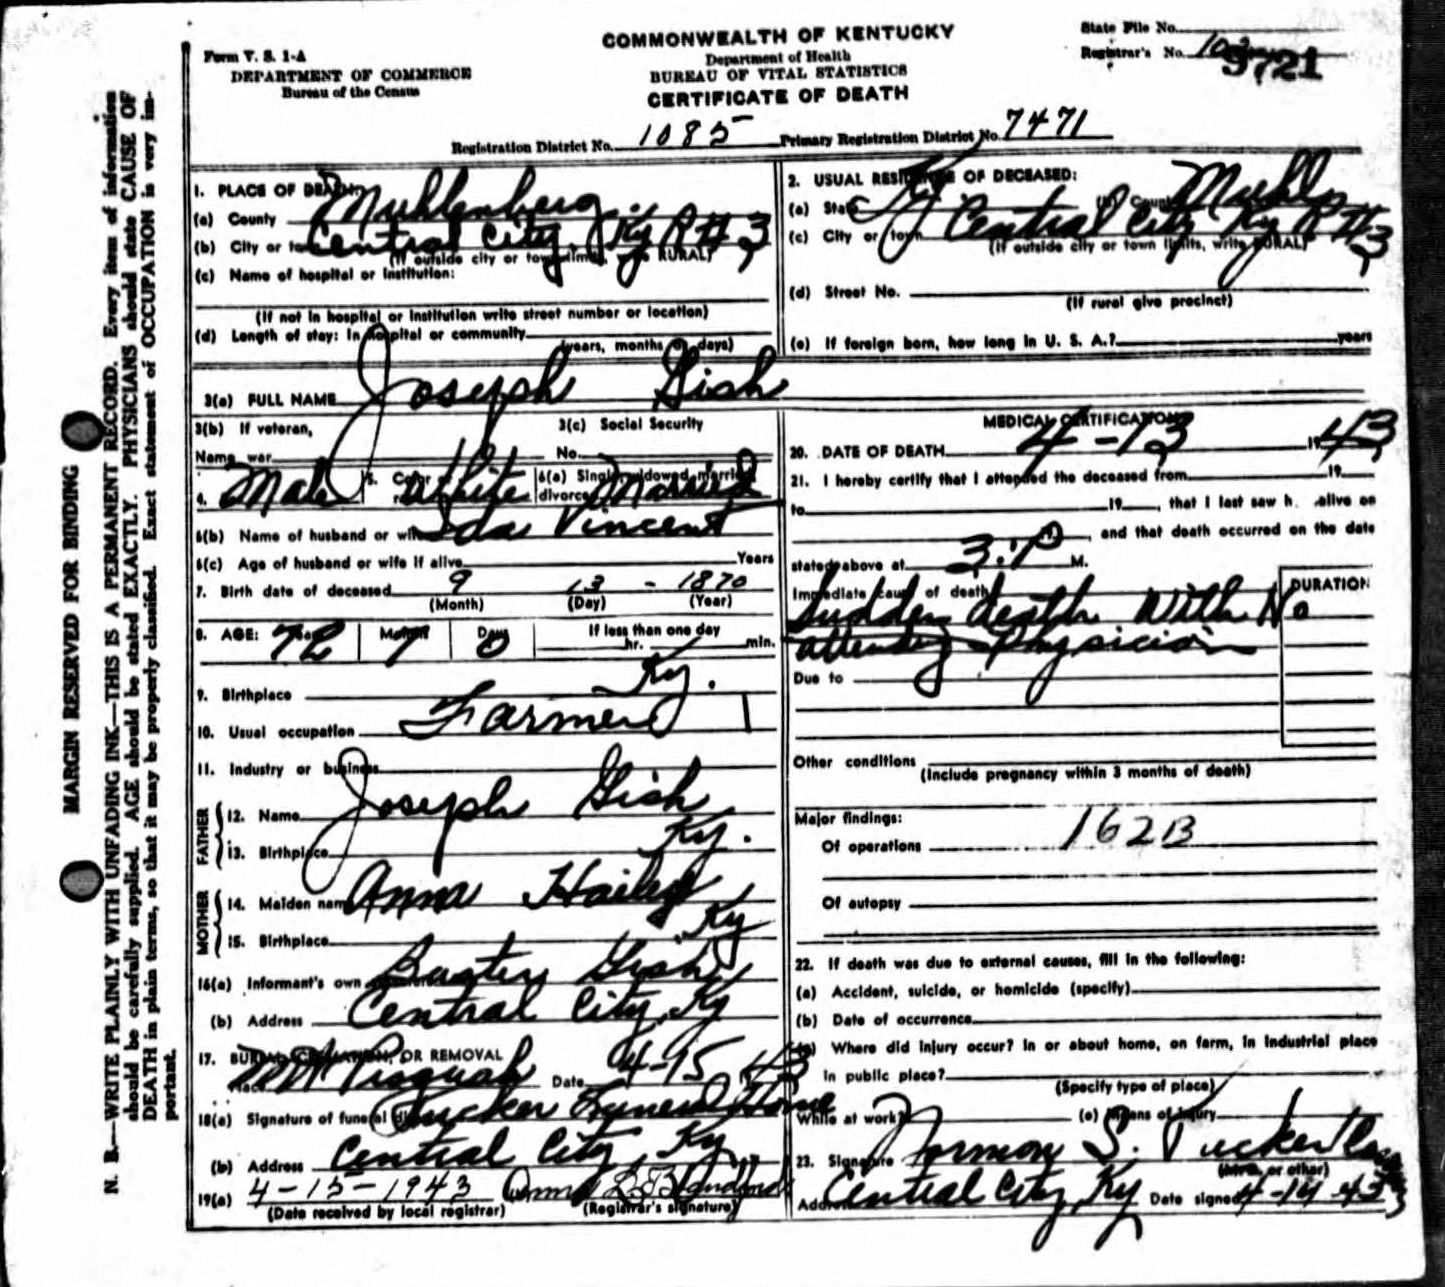 Form V. S. 1-A
DEPARTMENT OF COMMERCE
Bureau of the Census
COMMONWEALTH OF KENTUCKY
Department of Health
BUREAU OF VITAL STATISTICS
CERTIFICATE OF DEATH
State File No.
Registrar's No. 9721
Registration District No. 1085 Primary Registration District No. 7471
MARGIN RESERVED FOR BINDING
N. B.—WRITE PLAINLY WITH UNFADING INK—THIS IS A PERMANENT RECORD. Every item of information
should be carefully supplied. AGE should be stated EXACTLY. PHYSICIANS should state CAUSE OF
DEATH in plain terms, so that it may be properly classified. Exact statement of OCCUPATION is very im-
portant.
1. PLACE OF DEATH:
(a) County Muhlenberg
(b) City or town Central City, Ky R # 3
(If outside city or town limits, write RURAL)
(c) Name of hospital or institution:
(If not in hospital or institution write street number or location)
(d) Length of stay: In hospital or community
(years, months or days)
2. USUAL RESIDENCE OF DECEASED:
(a) State Ky (b) County Muhlg
(c) City or town Central City Ky R # 3
(If outside city or town limits, write RURAL)
(d) Street No.
(If rural give precinct)
(e) If foreign born, how long in U. S. A.? years
3(a) FULL NAME Joseph Gish
3(b) If veteran,
Name war
3(c) Social Security
No.
4. Male 5. Color White 6(a) Single, widowed, married,
divorced Married
6(b) Name of husband or wife Ida Vincent
6(c) Age of husband or wife if alive Years
7. Birth date of deceased 9 13 - 1870
(Month) (Day) (Year)
8. AGE: 72 Months 7 Days 0 If less than one day
hr. min.
9. Birthplace Ky.
10. Usual occupation Farmer
11. Industry or business
FATHER
12. Name Joseph Gish
13. Birthplace Ky.
MOTHER
14. Maiden name Anna Hailey
15. Birthplace Ky
16(a) Informant's own Buster Gish
(b) Address Central City, Ky
17. BURIAL, CREMATION, OR REMOVAL
Mt Pisquah Date 4-15 43
18(a) Signature of funeral Tucker Funeral Home
(b) Address Central City, Ky.
19(a) 4-15-1943
(Date received by local registrar) (Registrar's signature)
MEDICAL CERTIFICATION
20. DATE OF DEATH 4-13 1943
21. I hereby certify that I attended the deceased from 19
to 19, that I last saw h. alive on
, and that death occurred on the date
stated above at 3:P M.
Immediate cause of death
Sudden death With No
attending Physician
DURATION
Due to
Other conditions
(Include pregnancy within 3 months of death)
Major findings:
Of operations 162B
Of autopsy
22. If death was due to external causes, fill in the following:
(a) Accident, suicide, or homicide (specify)
(b) Date of occurrence
(c) Where did injury occur? In or about home, on farm, in industrial place
in public place?
(Specify type of place)
While at work? (e) Means of injury
23. Signature Norman S. Tucker
(M.D. or other)
Address Central City, Ky Date signed 4-14 43